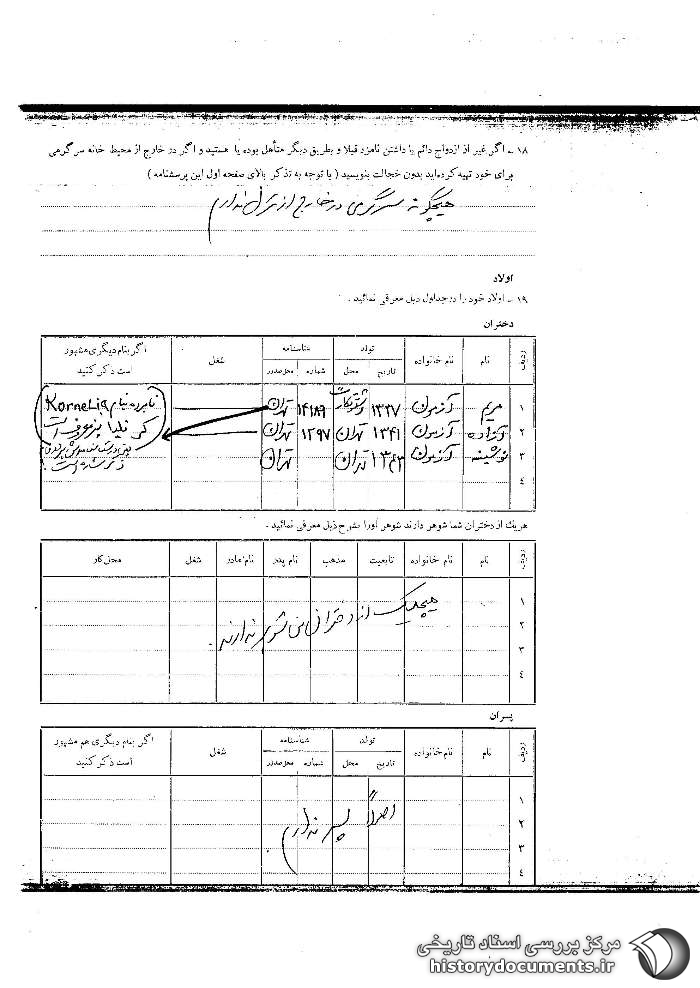 ۱۸ - اگر غیر از ازدواج دائم یا داشتن نامزد قبلا و بطریق دیگر متأهل بوده یا هستید و اگر در خارج از محیط خانه سرگرمی
برای خود تهیه کرده‌اید بدون خجالت بنویسید ( با توجه به تذکر بالای صفحه اول این پرسشنامه )
هیچگونه سرگرمی در خارج از منزل ندارم
اولاد
۱۹ - اولاد خود را در جداول ذیل معرفی نمائید .
دختران
ردیف نام نام خانواده تولد تاریخ محل شناسنامه شماره محل صدور شغل اگر بنام دیگری مشهور است ذکر کنید
۱ مریم آزمون ۱۳۳۷ ۱۴۱۸۹ تهران نامبرده بنام Kornelia
۲ آزاده آزمون ۱۳۴۱ تهران ۱۲۹۷ تهران کرنلیا نیز معروف است
۳ نوشینه آزمون ۱۳۴۳ تهران تهران
۴
هریک از دختران شما شوهر دارند شوهر اورا بشرح ذیل معرفی نمائید .
ردیف نام نام خانواده تابعیت مذهب نام پدر نام مادر شغل محل کار
۱
۲
۳
۴
هیچیک از دختران من شوهر ندارند .
پسران
ردیف نام نام خانواده تولد تاریخ محل شناسنامه شماره محل صدور شغل اگر بنام دیگری هم مشهور است ذکر کنید
۱
۲
۳
۴
اصلاً پسر ندارم .
مرکز بررسی اسناد تاریخی
historydocuments.ir